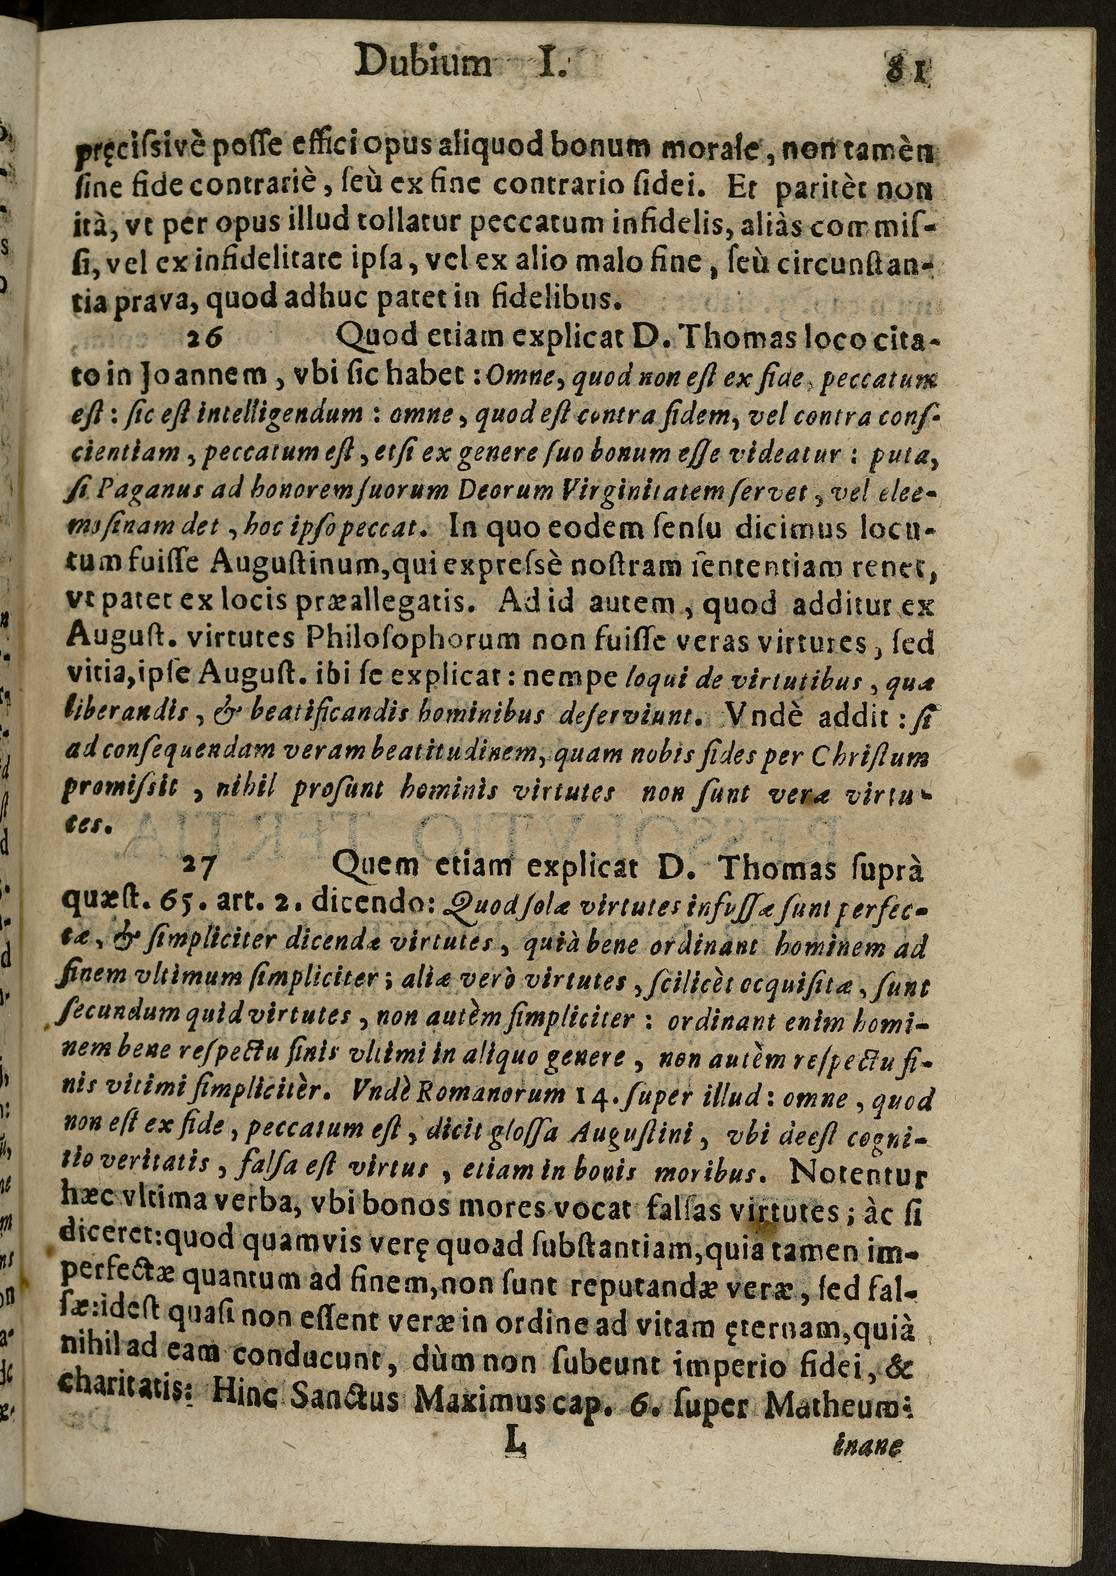 Dubium I. 81
pręcisſivè poſſe effici opus aliquod bonum morale, non tamèn
ſine fide contrariè, ſeù ex fine contrario fidei. Et paritèr non
ità, vt per opus illud tollatur peccatum infidelis, aliàs commiſ-
ſi, vel ex infidelitate ipſa, vel ex alio malo fine, ſeù circunſtan-
tia prava, quod adhuc patet in fidelibus.
26 Quod etiam explicat D. Thomas loco cita-
to in Joannem, vbi ſic habet: Omne, quod non eſt ex fide, peccatum
eſt: ſic eſt intelligendum: omne, quod eſt contra fidem, vel contra conſ-
cientiam, peccatum eſt, etſi ex genere ſuo bonum eſſe videatur: puta,
ſi Paganus ad honorem ſuorum Deorum Virginitatem ſervet, vel elee-
moſinam det, hoc ipſo peccat. In quo eodem ſenſu dicimus locu-
tum fuiſſe Auguſtinum, qui expreſsè noſtram ſententiam tenet,
vt patet ex locis præallegatis. Ad id autem, quod additur ex
Auguſt. virtutes Philoſophorum non fuiſſe veras virtutes, ſed
vitia, ipſe Auguſt. ibi ſe explicat: nempe loqui de virtutibus, quæ
liberandis, & beatificandis hominibus deſerviunt. Vndè addit: ſi
ad conſequendam veram beatitudinem, quam nobis fides per Chriſtum
promiſsit, nihil proſunt hominis virtutes non ſunt veræ virtu-
tes.
27 Quem etiam explicat D. Thomas ſuprà
quæſt. 65. art. 2. dicendo: Quod ſolæ virtutes infuſſæ ſunt perfec-
tæ, & ſimpliciter dicendæ virtutes, quià bene ordinant hominem ad
finem vltimum ſimpliciter; aliæ verò virtutes, ſcilicèt acquiſitæ, ſunt
ſecundum quid virtutes, non autèm ſimpliciter: ordinant enim homi-
nem bene reſpectu finis vltimi in aliquo genere, non autèm reſpectu fi-
nis vltimi ſimplicitèr. Vndè Romanorum 14. ſuper illud: omne, quod
non eſt ex fide, peccatum eſt, dicit gloſſa Auguſtini, vbi deeſt cogni-
tio veritatis, falſa eſt virtus, etiam in bonis moribus. Notentur
hæc vltima verba, vbi bonos mores vocat falſas virtutes; àc ſi
diceret: quod quamvis verę quoad ſubſtantiam, quia tamen im-
perfectæ quantum ad finem, non ſunt reputandæ veræ, ſed fal-
ſæ: ideſt quaſi non eſſent veræ in ordine ad vitam ęternam, quià
nihil ad eam conducunt, dùm non ſubeunt imperio fidei, &
charitatis: Hinc Sanctus Maximus cap. 6. ſuper Matheum:
L inane